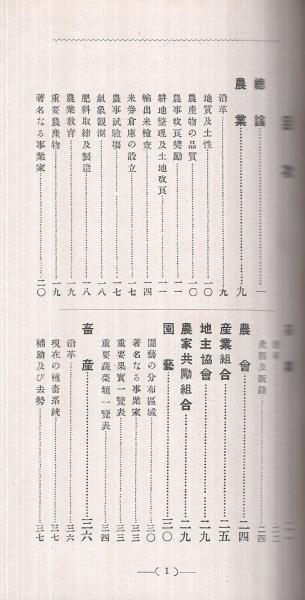 目次
總論…一
農業…九
沿革…九
地質及土性…一〇
農產物の品質…一〇
農事改良奬勵…一一
耕地整理及土地改良…一一
輸出米檢査…一四
米券倉庫の設立…一七
農事試驗場…一七
氣象觀測…一八
肥料取締及製造…一八
農業教育…一九
重要農產物…一九
著名なる事業家…二〇
沿革
產額及販路…二四
農會…二四
產業組合…二五
地主協會…二九
農家共勵組合…二九
園藝…三〇
園藝の分布區域…三〇
著名なる事業家…三三
重要果實一覽表…三三
重要蔬菜類一覽表…三四
畜產…三六
沿革…三六
現在の種畜系統…三七
補助及び去勢…三七
—( 1 )—